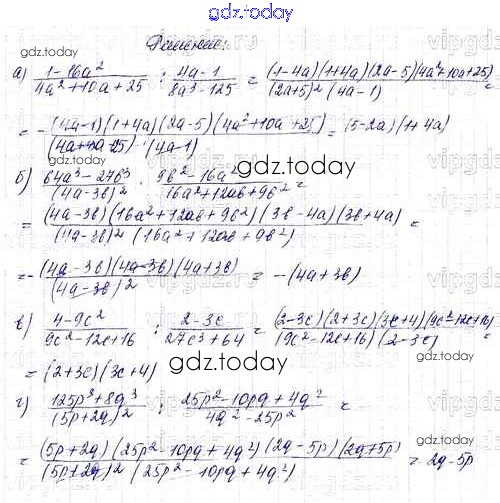 gdz.today
Решение:
gdz.today
а) (1-16a²)/(4a²+10a+25) : (4a-1)/(8a³-125) = ((1-4a)(1+4a)(2a-5)(4a²+10a+25))/((2a+5)²(4a-1)) =
= -((4a-1)(1+4a)(2a-5)(4a²+10a+25))/((4a+10a+25)(4a-1)) = (5-2a)(1+4a)
gdz.today
б) (64a³-27b³)/(4a-3b)² : (9b²-16a²)/(16a²+12ab+9b²) =
gdz.today
= ((4a-3b)(16a²+12ab+9b²)(3b-4a)(3b+4a))/((4a-3b)²(16a²+12ab+9b²)) =
= -((4a-3b)(4a-3b)(4a+3b))/(4a-3b)² = -(4a+3b)
gdz.today
в) (4-9c²)/(9c²-12c+16) : (2-3c)/(27c³+64) = ((2-3c)(2+3c)(3c+4)(9c²-12c+16))/((9c²-12c+16)(2-3c)) =
= (2+3c)(3c+4)
gdz.today
г) (125p³+8q³)/(5p+2q)² : (25p²-10pq+4q²)/(4q²-25p²) =
gdz.today
= ((5p+2q)(25p²-10pq+4q²)(2q-5p)(2q+5p))/((5p+2q)²(25p²-10pq+4q²)) = 2q-5p
gdz.today
gdz.today